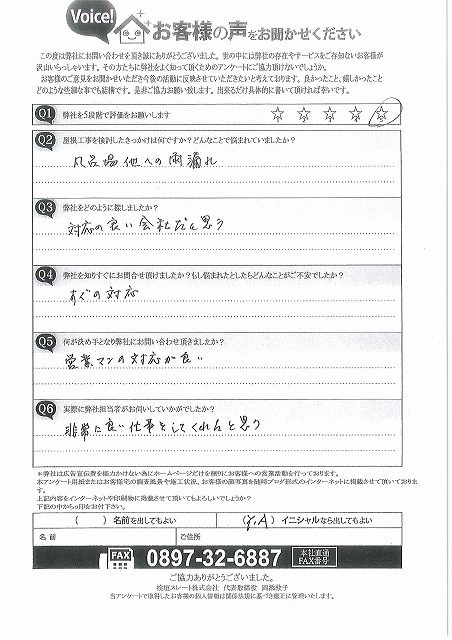 Voice! お客様の声をお聞かせください
この度は弊社にお問い合わせを頂き誠にありがとうございました。世の中には弊社の存在やサービスをご存知ないお客様が
沢山いらっしゃいます。その方たちに弊社をよく知って頂くためのアンケートにご協力頂けないでしょうか。
お客様のご意見をお聞かせいただき今後の活動に反映させていただきたいと考えております。良かったこと、嬉しかったこと
どのような些細な事でも結構です。是非ご協力お願い致します。出来るだけ具体的に書いて頂ければ幸いです。
Q1 弊社を5段階で評価をお願いします ☆ ☆ ☆ ☆ ☆
Q2 屋根工事を検討したきっかけは何ですか?どんなことで悩まれていましたか?
風呂場他への雨漏れ
Q3 弊社をどのように探しましたか?
対応の良い会社だと思う
Q4 弊社を知りすぐにお問合せ頂けましたか?もし悩まれたとしたらどんなことがご不安でしたか?
すぐの対応
Q5 何が決め手となり弊社にお問い合わせ頂きましたか?
営業マンの対応が良い
Q6 実際に弊社担当者がお伺いしていかがでしたか?
非常に良い仕事をしてくれたと思う
※弊社は広告宣伝費を極力かけない為にホームページだけを頼りにお客様への営業活動を行っております。
本アンケート用紙またはお客様宅の調査風景や施工状況、お客様の顔写真を随時ブログ形式のインターネットに掲載させて頂いておりま
す。
上記内容をインターネットや印刷物に掲載させて頂いてもよろしいでしょうか?
下記の中から○印をお付下さい。
( ) 名前を出してもよい (Y,A) イニシャルなら出してもよい
名前 ご住所
FAX 0897-32-6887 本社直通 FAX番号
ご協力ありがとうございました。
桧垣スレート株式会社 代表取締役 岡添紋子
当アンケートで取得したお客様の個人情報は関係法規に基づき厳正に管理いたします。